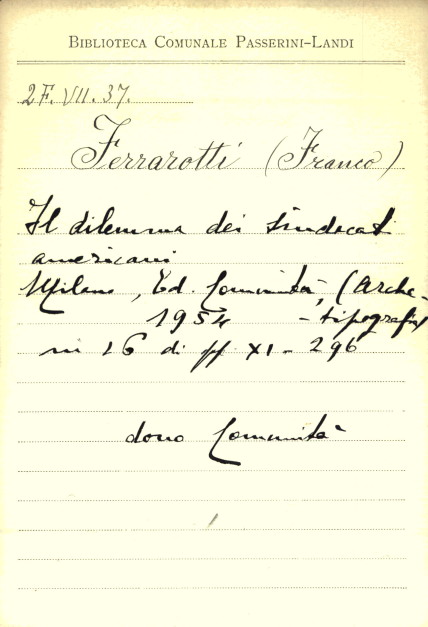 BIBLIOTECA COMUNALE PASSERINI-LANDI
2F.VII.37.
Ferrarotti (Franco)
Il dilemma dei sindacati
americani
Milano, Ed. Comunità, (Arche-
1954 - tipografia)
in 16 di pp XI-296
dono Comunità